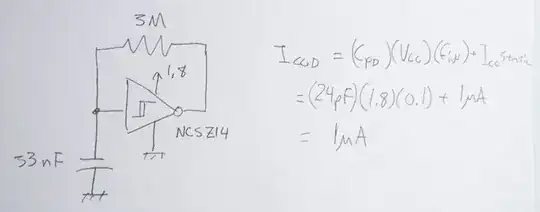 3M
1,8
NCSZ14
33nF
I_CCD = (C_PD)(V_CC)(f_IN) + I_CC static
= (24pF)(1.8)(0.1) + 1μA
= 1μA